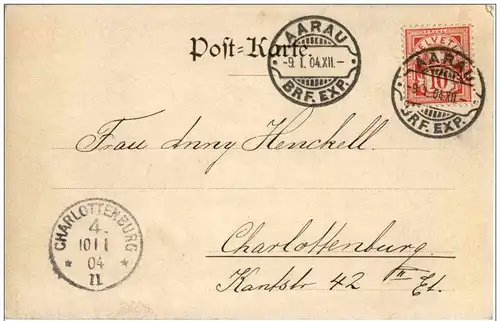 AARAU
-9.I.04.XII.-
BRF. EXP.
Post-Karte.
HELVETIA
10
AARAU
-9.I.04.XII.-
BRF. EXP.
Frau Anny Henckell.
CHARLOTTENBURG
4.
10 1 1
04
II
Charlottenburg.
Kantstr 42 II Et.